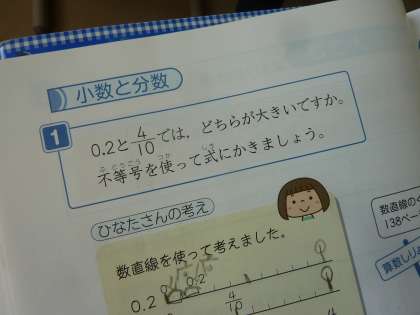 小数と分数
1
0.2と4/10では，どちらが大きいですか。
不等号を使って式にかきましょう。
ひなたさんの考え
数直線を使って考えました。
0.2
0.2
4/10
数直線の
138ペー
算数しり